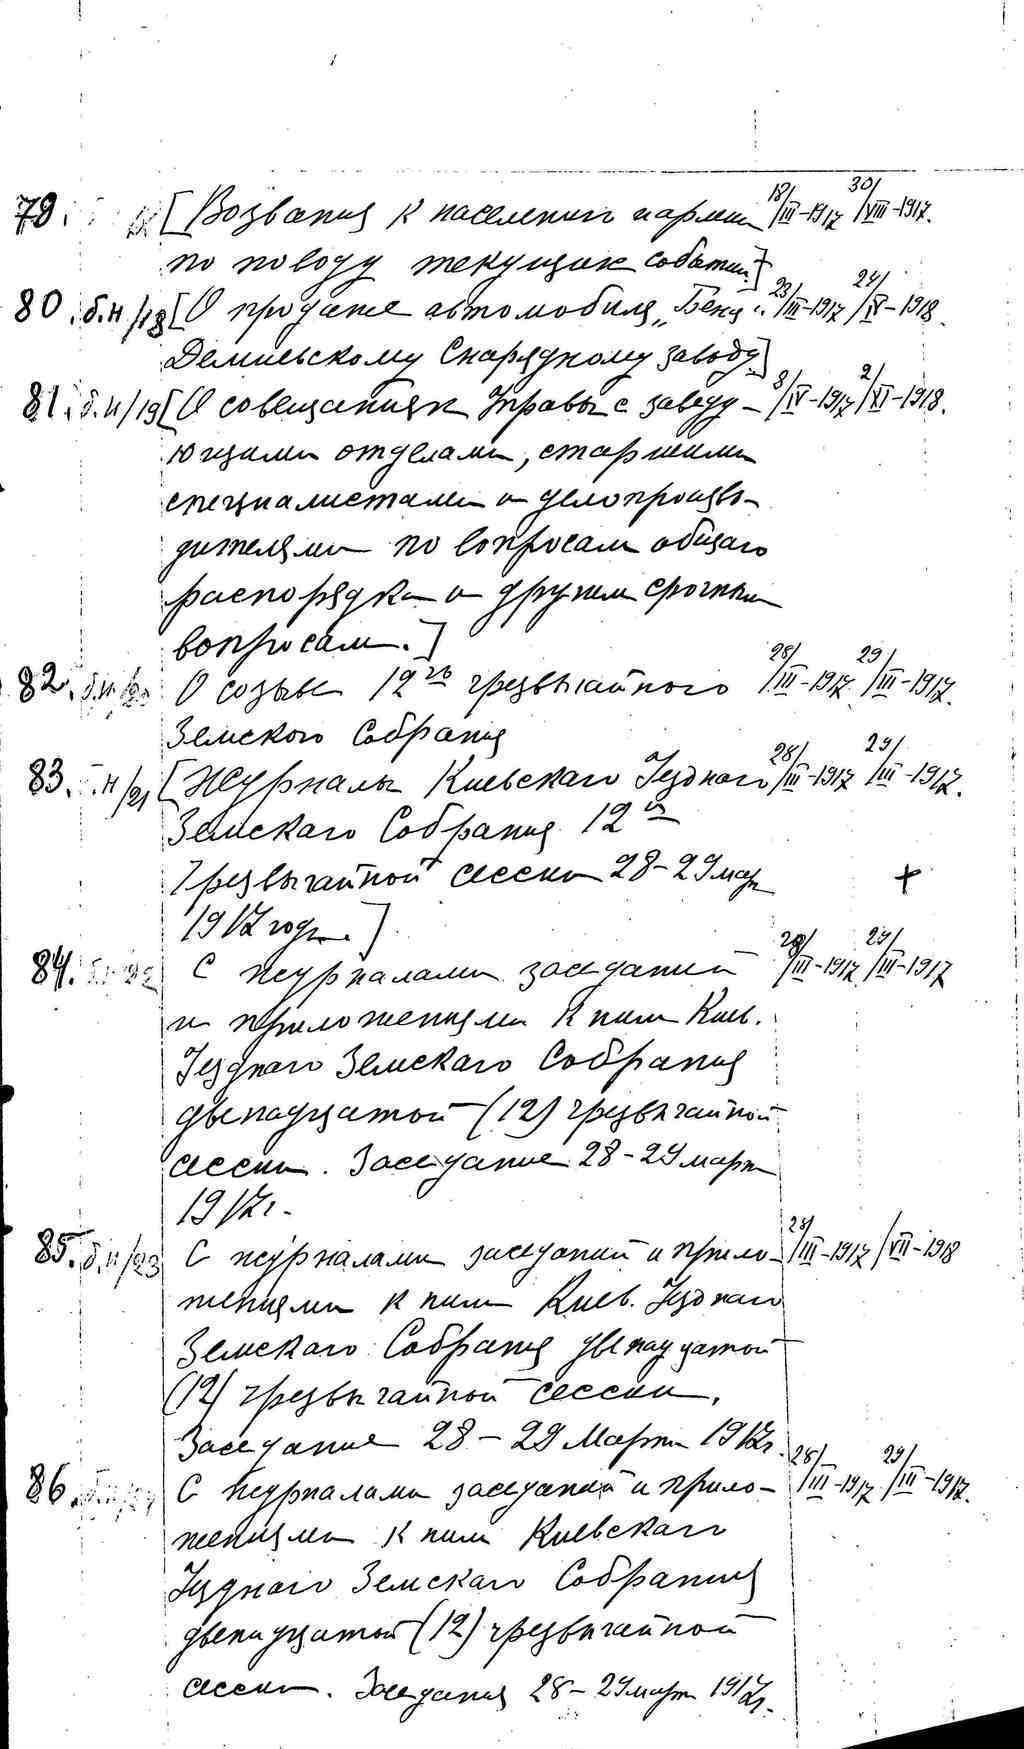 79. [Воззвания к населению и армии 18/III-1917 30/VIII-1917.
по поводу текущих событий.]
80. б.н/18 [О продаже автомобиля „Бенц“ 23/III-1917 24/IV-1918.
Демиевскому Снарядному заводу]
81. б.н/19 [О совещаниях Управы с заведу- 8/IV-1917 2/XI-1918.
ющими отделами, старшими
специалистами и делопроизво-
дителями по вопросам общаго
распорядка и другим срочным
вопросам.]
82. б.н/20 О созыве 12го чрезвычайного 28/III-1917 29/III-1917.
Земского Собрания
83. б.н/21 [Журналы Киевскаго Уезднаго 28/III-1917 29/III-1917.
Земскаго Собрания 12й
Чрезвычайной сессии 28-29 март +
1917 года.]
84. б.н/22 С журналами заседаний 28/III-1917 29/III-1917
и приложениями к ним Киев.
Уезднаго Земскаго Собрания
двенадцатой (12) чрезвычайной
сессии. Заседание 28-29 марта
1917г.
85. б.н/23 С журналами заседаний и прило- 28/III-1917 /VII-1918
жениями к ним Киев. Уезднаго
Земскаго Собрания двенадцатой
(12) чрезвычайной сессии.
Заседание 28-29 Марта 1917г.
86. С журналами заседаний и прило- 28/III-1917 29/III-1917.
жениями к ним Киевскаго
Уезднаго Земскаго Собрания
двенадцатой (12) чрезвычайной
сессии. Заседания 28-29 март 1917г.